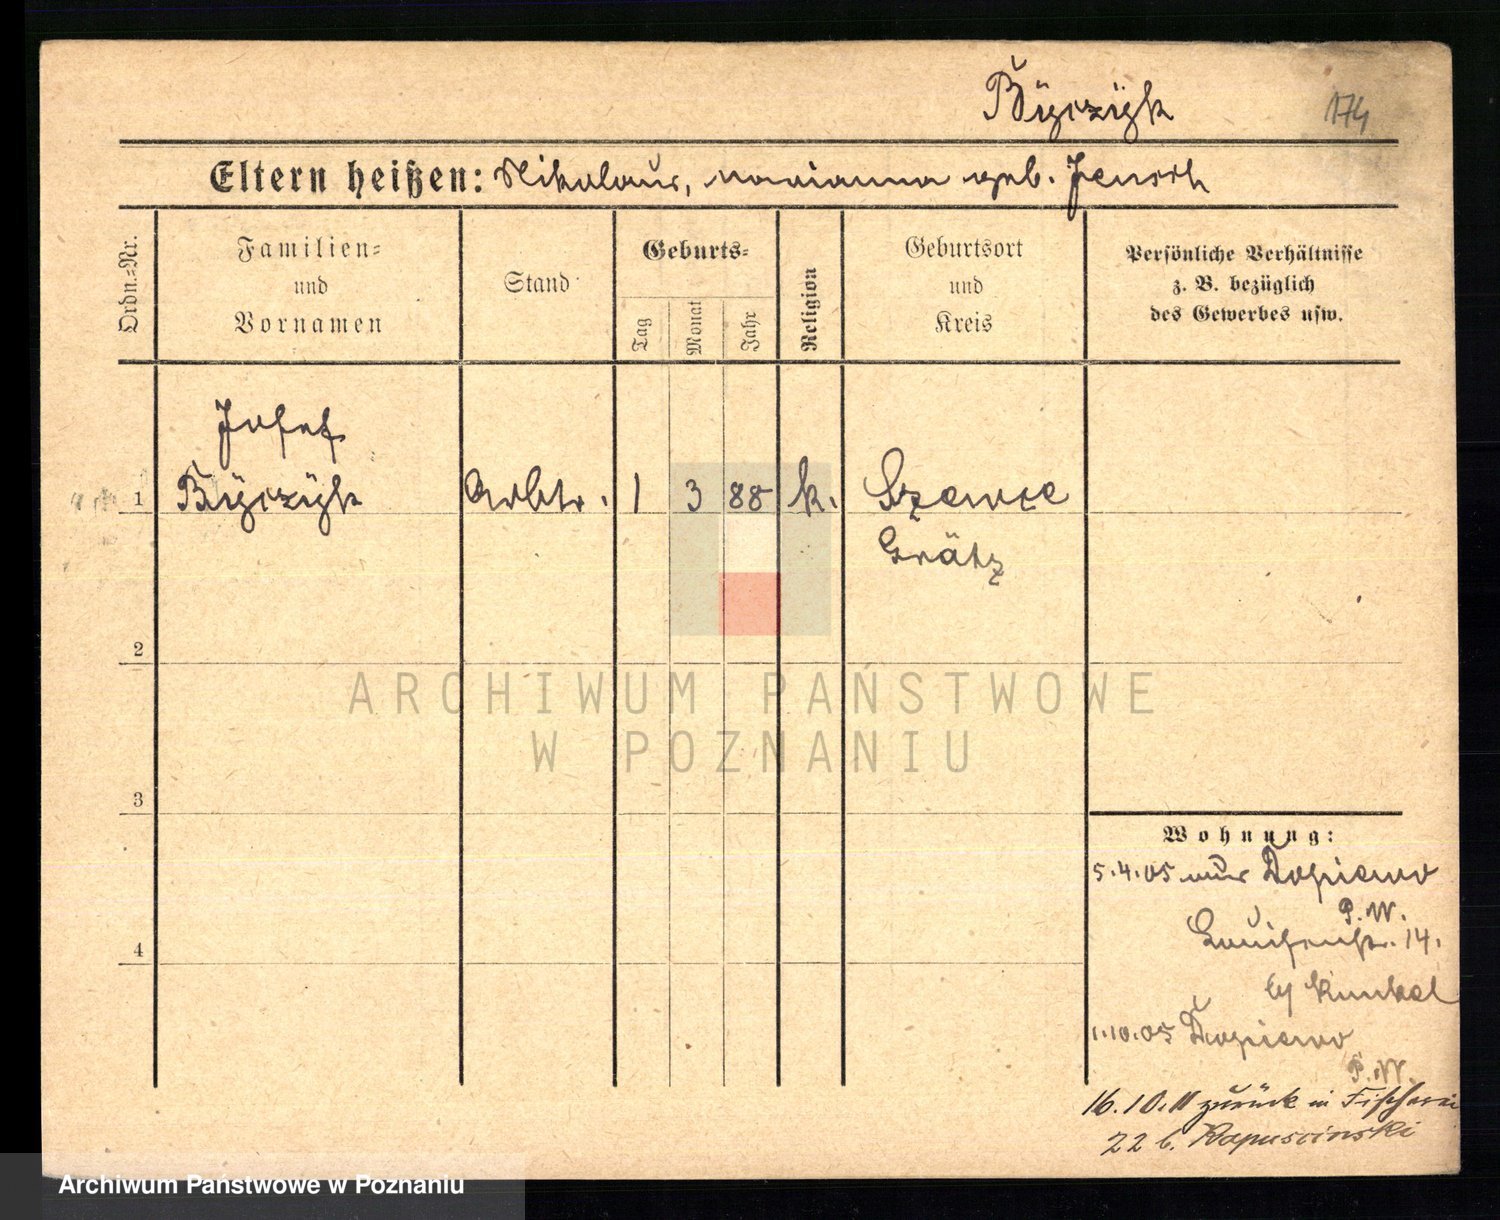 Byczyk
174
Eltern heißen: Nikolaus, Marianna geb.
Ordn.-Nr.
Familien-
und
Vornamen
Stand
Geburts-
Tag
Monat
Jahr
Religion
Geburtsort
und
Kreis
Persönliche Verhältnisse
z. B. bezüglich
des Gewerbes usw.
Josef
1 Byczyk Arbtr. 1 3 88 k. Szewce
Grätz
2
3
4
ARCHIWUM PAŃSTWOWE
W POZNANIU
Wohnung:
5.4.05 Dopiewo
P.W.
Louisenstr. 14.
b/ Kunkel
1.10.05 Dopiewo
P.W.
16.10.11 zurück in Fischerei
22 b. Kapuscinski
Archiwum Państwowe w Poznaniu